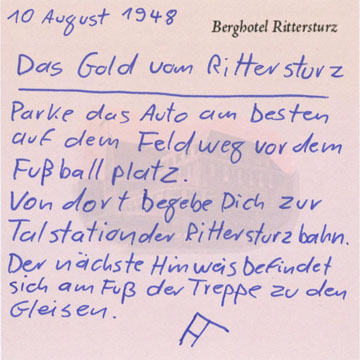 10 August 1948
Berghotel Rittersturz
Das Gold vom Rittersturz
Parke das Auto am besten
auf dem Feldweg vor dem
Fußballplatz.
Von dort begebe Dich zur
Talstation der Rittersturzbahn.
Der nächste Hinweis befindet
sich am Fuß der Treppe zu den
Gleisen.